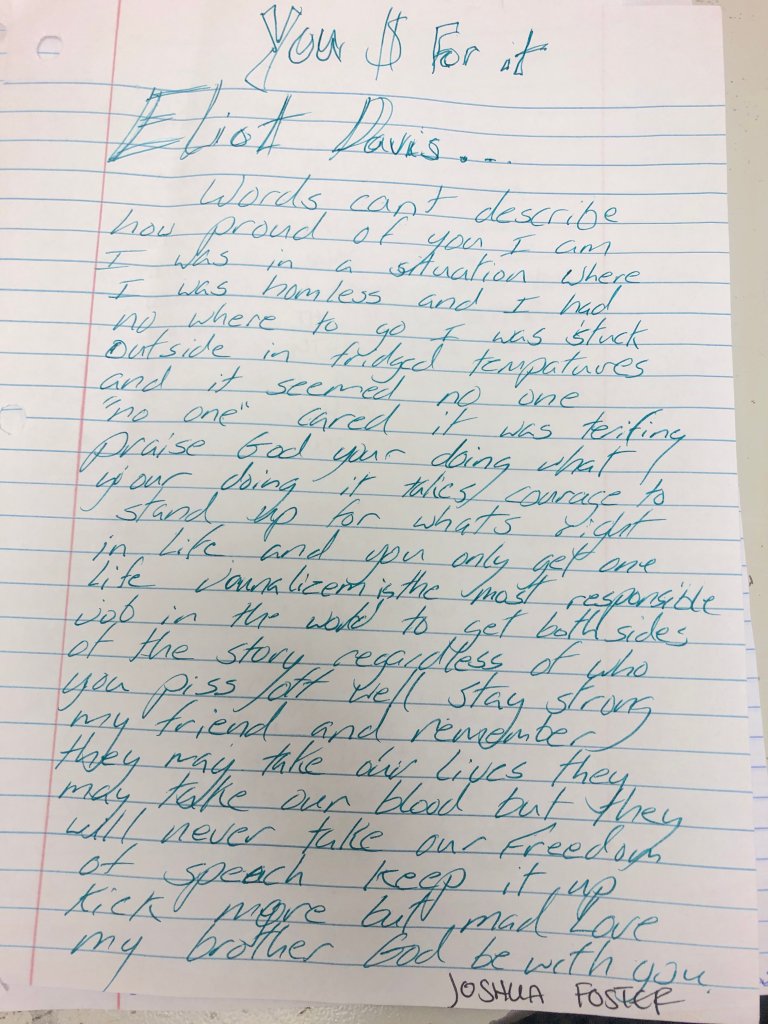 You $ For it
Eliot Davis...
Words can't describe
how proud of you I am
I was in a situation where
I was homless and I had
no where to go I was stuck
outside in fridged tempatures
and it seemed no one
"no one" cared it was terifing
praise God your doing what
your doing it takes courage to
stand up for whats right
in life and you only get one
life journalizem is the most responsible
job in the world to get both sides
of the story regardless of who
you piss off well stay strong
my friend and remember
they may take our lives they
may take our blood but they
will never take our Freedom
of speach keep it up
Kick more but mad Love
my brother God be with you.
JOSHUA FOSTER